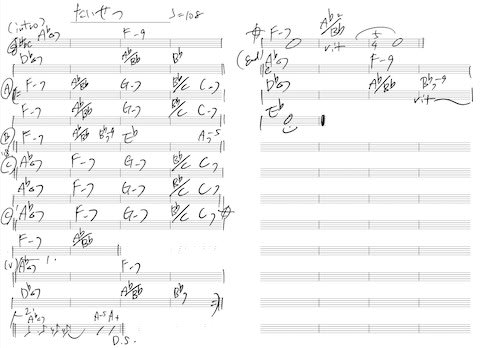 (intro) たいせつ ♩=108
A♭△7 F-9
D♭△7 A♭/B♭ B♭
Ⓐ F-7 A♭/B♭ G-7 B♭/C C7
F-7 A♭/B♭ G-7 B♭/C C7
Ⓑ F-7 A♭/B♭ B♭7-9 E♭ A7-5
Ⓒ A♭△7 F-7 G-7 B♭/C C7
A♭△7 F-7 G-7 B♭/C C7
Ⓒ A♭△7 F-7 G-7 B♭/C C7
F-7 A♭/B♭
1.
A♭△7 F-7
D♭△7 A♭/B♭ B♭7
2. A♭△7 A-5 A+
D.S.
F-7 A♭/B♭ 5/4
rit
(End) A♭△7 F-9
D♭△7 A♭/B♭ B♭7-9
rit
E♭